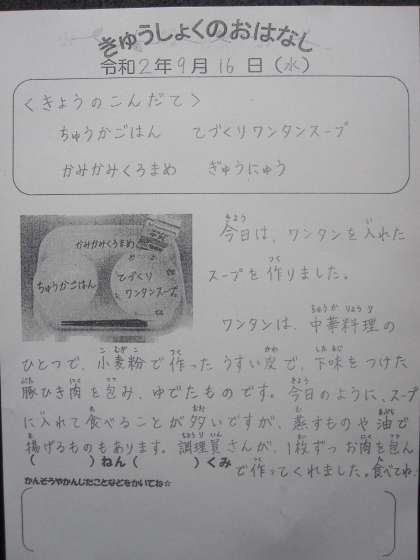 きゅうしょくのおはなし
令和2年9月16日(水)
〈きょうのこんだて〉
ちゅうかごはん てづくりワンタンスープ
かみかみくろまめ ぎゅうにゅう
かみかみくろまめ
ちゅうかごはん
てづくり
ワンタンスープ
今日は、ワンタンを入れた
スープを作りました。
ワンタンは、中華料理の
ひとつで、小麦粉で作ったうすい皮で、下味をつけた
豚ひき肉を包み、ゆでたものです。今日のように、スープ
に入れて食べることが多いですが、蒸すものや油で
揚げるものもあります。調理員さんが、1枚ずつお肉を包ん
で作ってくれました。食べてね。
( )ねん( )くみ
かんそうやかんじたことなどをかいてね☆